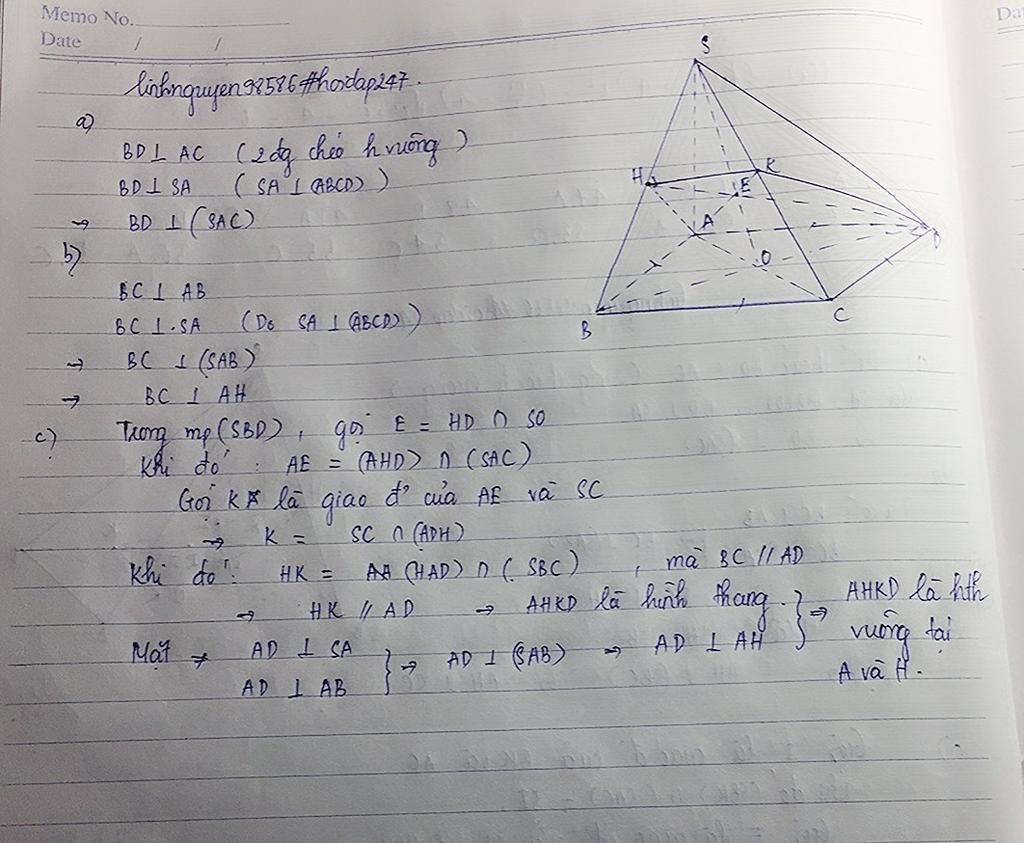 Memo No.
Date / /
Da
linhnguyen98586#hoidap247.
a)
BD ⊥ AC (2 đg chéo h vuông)
BD ⊥ SA (SA ⊥ (ABCD))
→ BD ⊥ (SAC)
b)
BC ⊥ AB
BC ⊥ SA (Do SA ⊥ (ABCD))
→ BC ⊥ (SAB)
→ BC ⊥ AH
c) Trong mp (SBD), gọi E = HD ∩ SO
Khi đó: AE = (AHD) ∩ (SAC)
Gọi K là giao đ' của AE và SC
→ K = SC ∩ (ADH)
Khi đó: HK = (HAD) ∩ (SBC), mà BC // AD
→ HK // AD → AHKD là hình thang. } ⇒ AHKD là hth
Mặt ≠ AD ⊥ SA } ⇒ AD ⊥ (SAB) ⇒ AD ⊥ AH vuông tại
AD ⊥ AB A và H.
S
H
K
E
A
D
O
B
C